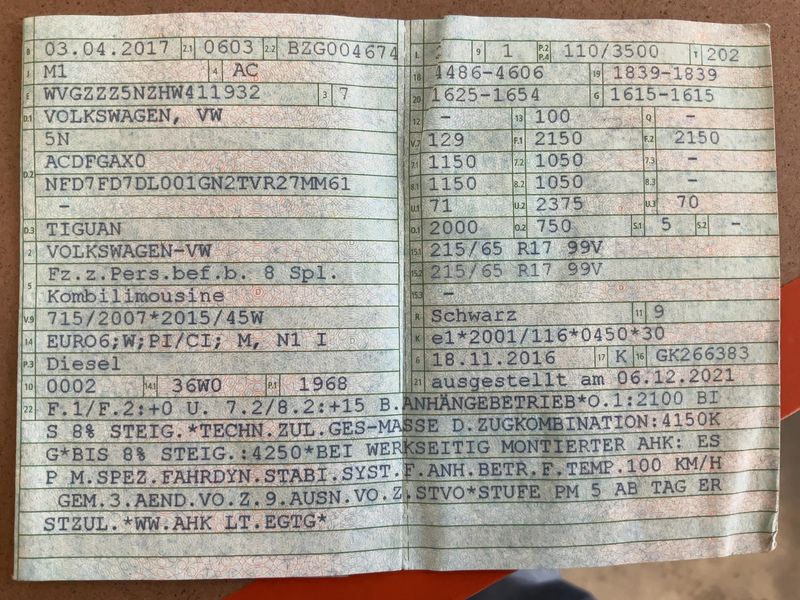 B 03.04.2017 2.1 0603 2.2 BZG004674
J M1 4 AC
E WVGZZZ5NZHW411932 3 7
D.1 VOLKSWAGEN, VW
5N
D.2 ACDFGAX0
NFD7FD7DL001GN2TVR27MM61
-
D.3 TIGUAN
2 VOLKSWAGEN-VW
5 Fz.z.Pers.bef.b. 8 Spl.
Kombilimousine
V.9 715/2007*2015/45W
14 EURO6;W;PI/CI; M, N1 I
P.3 Diesel
10 0002 14.1 36W0 P.1 1968
L 9 1 P.2 P.4 110/3500 T 202
18 4486-4606 19 1839-1839
20 1625-1654 G 1615-1615
12 - 13 100 Q -
V.7 129 F.1 2150 F.2 2150
7.1 1150 7.2 1050 7.3 -
8.1 1150 8.2 1050 8.3 -
U.1 71 U.2 2375 U.3 70
O.1 2000 O.2 750 S.1 5 S.2 -
15.1 215/65 R17 99V
15.2 215/65 R17 99V
15.3 -
R Schwarz 11 9
K e1*2001/116*0450*30
6 18.11.2016 17 K 16 GK266383
21 ausgestellt am 06.12.2021
22 F.1/F.2:+0 U. 7.2/8.2:+15 B.ANHÄNGEBETRIEB*O.1:2100 BI
S 8% STEIG.*TECHN.ZUL.GES-MASSE D.ZUGKOMBINATION:4150K
G*BIS 8% STEIG.:4250*BEI WERKSEITIG MONTIERTER AHK: ES
P M.SPEZ.FAHRDYN.STABI.SYST.F.ANH.BETR.F.TEMP.100 KM/H
GEM.3.AEND.VO.Z.9.AUSN.VO.Z.STVO*STUFE PM 5 AB TAG ER
STZUL.*WW.AHK LT.EGTG*